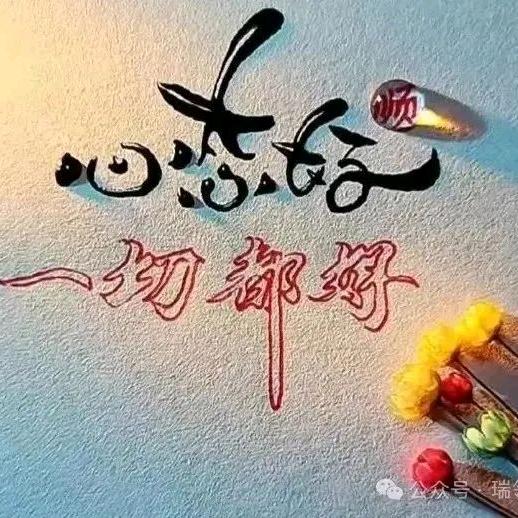 心态好
顺
一切都好
公众号·瑞